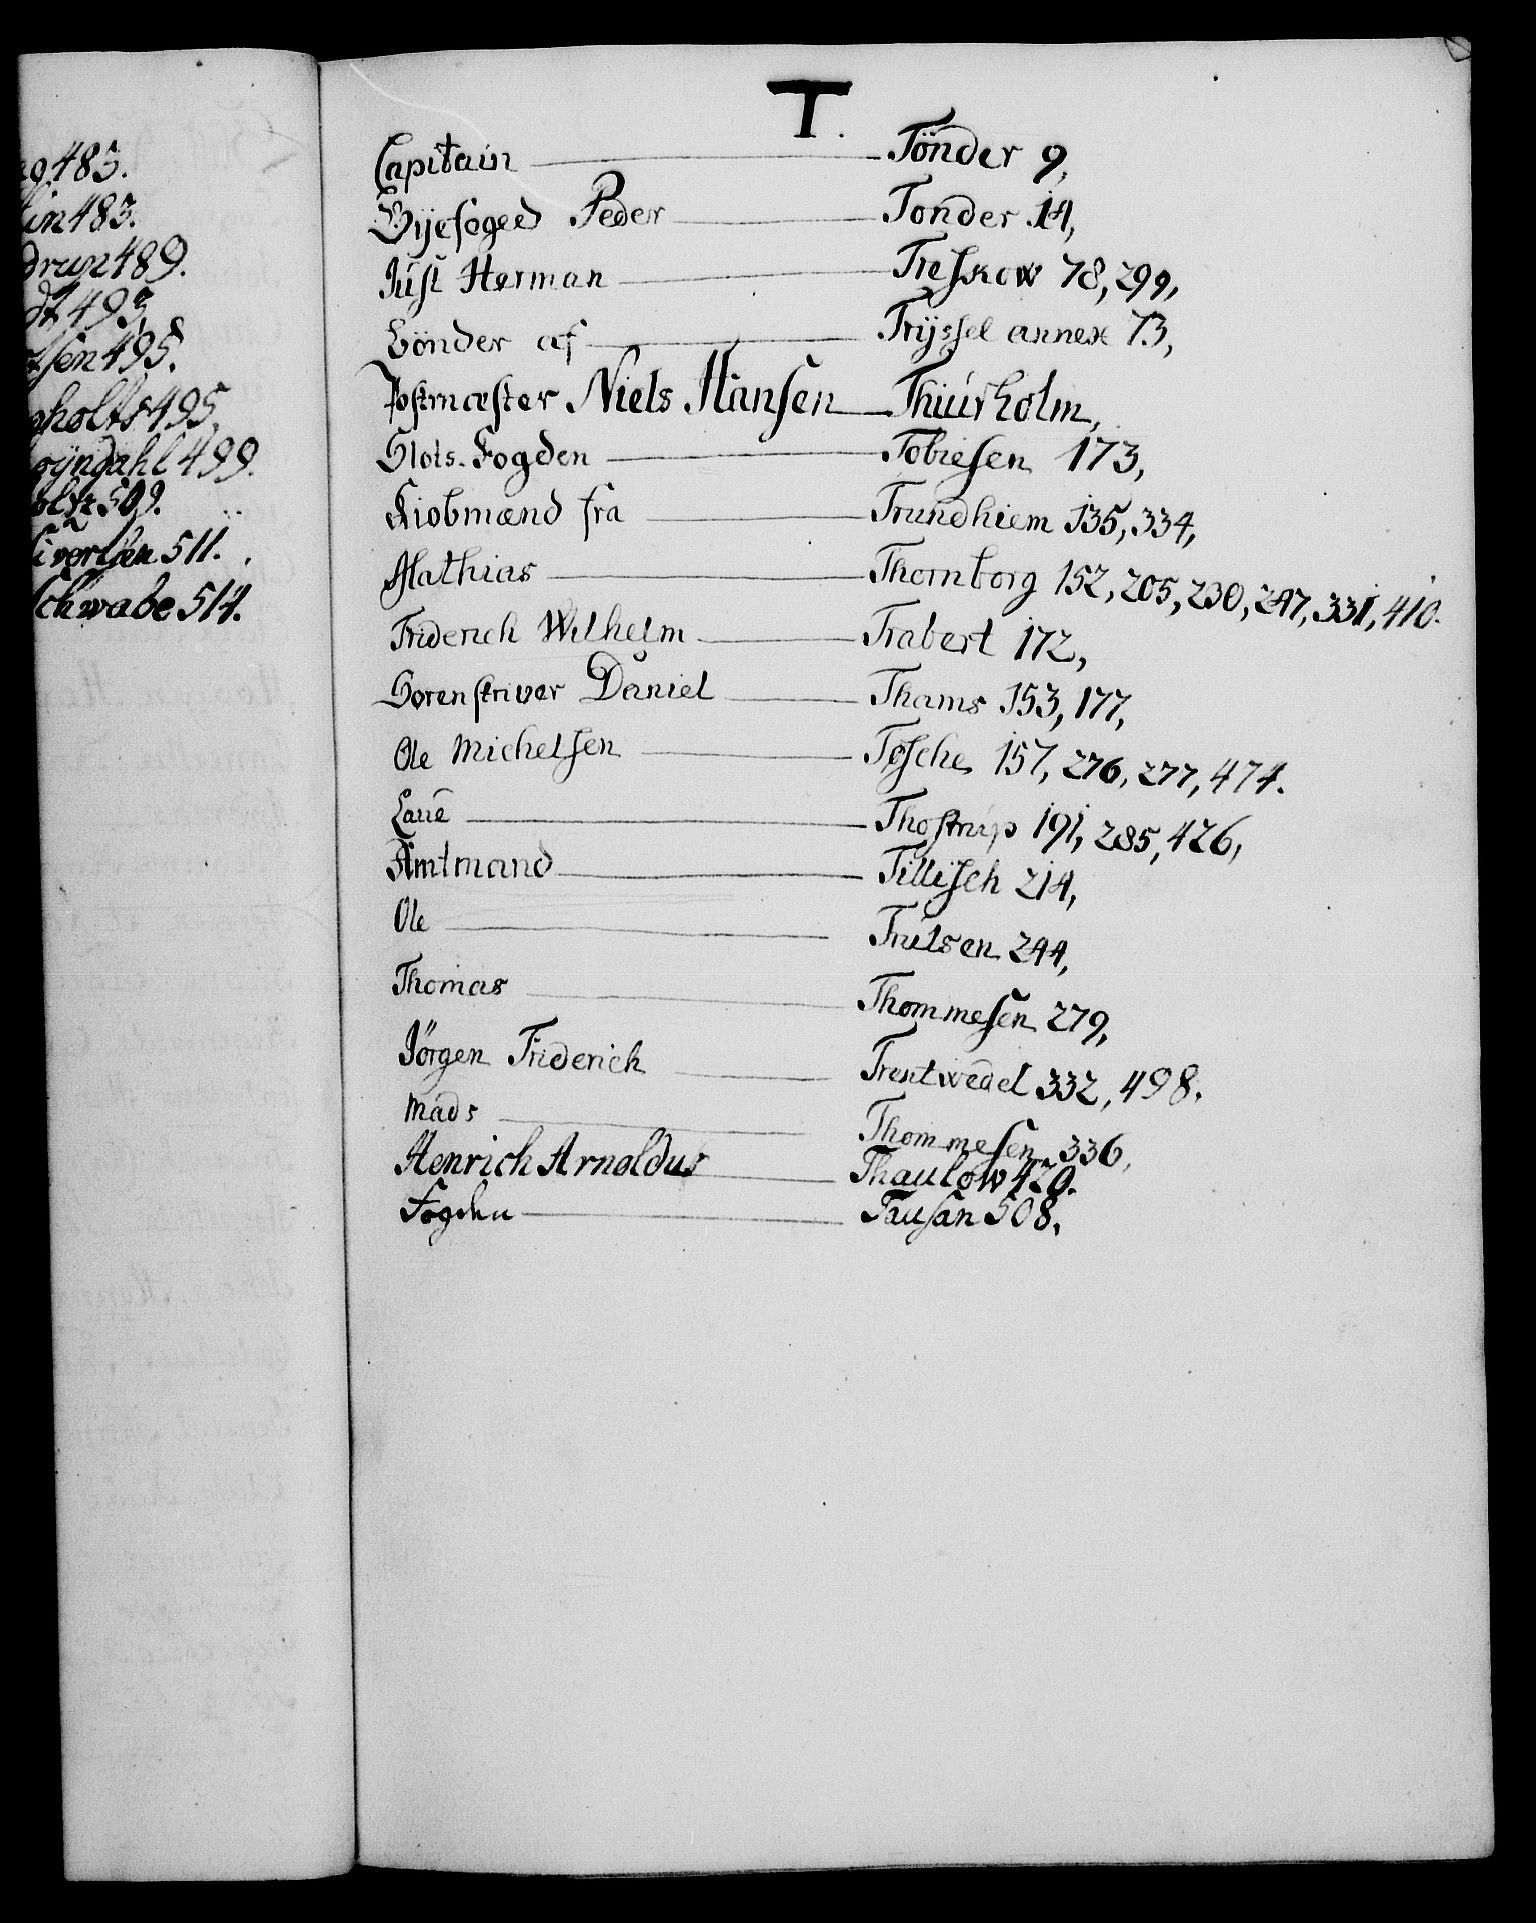 483.
483.
drup 489.
dt 493,
sen 495.
holts 495,
öÿndahl 499.
509.
Sivertsen 511.
Schwabe 514.
T.
Capitain Tönder 9,
Bÿefoged Peder Tonder 14,
Just Herman Treskow 78, 299,
Bönder af Trÿssel annex 73,
Postmæster Niels Hansen Thuirholm,
Slots-Fogden Tobiesen 173,
Kiobmænd fra Trundhiem 135, 334,
Mathias Thornborg 152, 205, 230, 247, 331, 410.
Friderich Wilhelm Trabert 172,
Sorenskriver Daniel Thams 153, 177,
Ole Michelsen Tosche 157, 276, 277, 474.
Laue Thostrup 191, 285, 426,
Amtmand Tillisch 214,
Ole Trulsen 244,
Thomas Thommesen 279,
Jörgen Friderich Trentwedel 332, 498.
Mads Thommesen 336,
Henrich Arnoldus Thaulow 420.
Fogden Tausan 508,